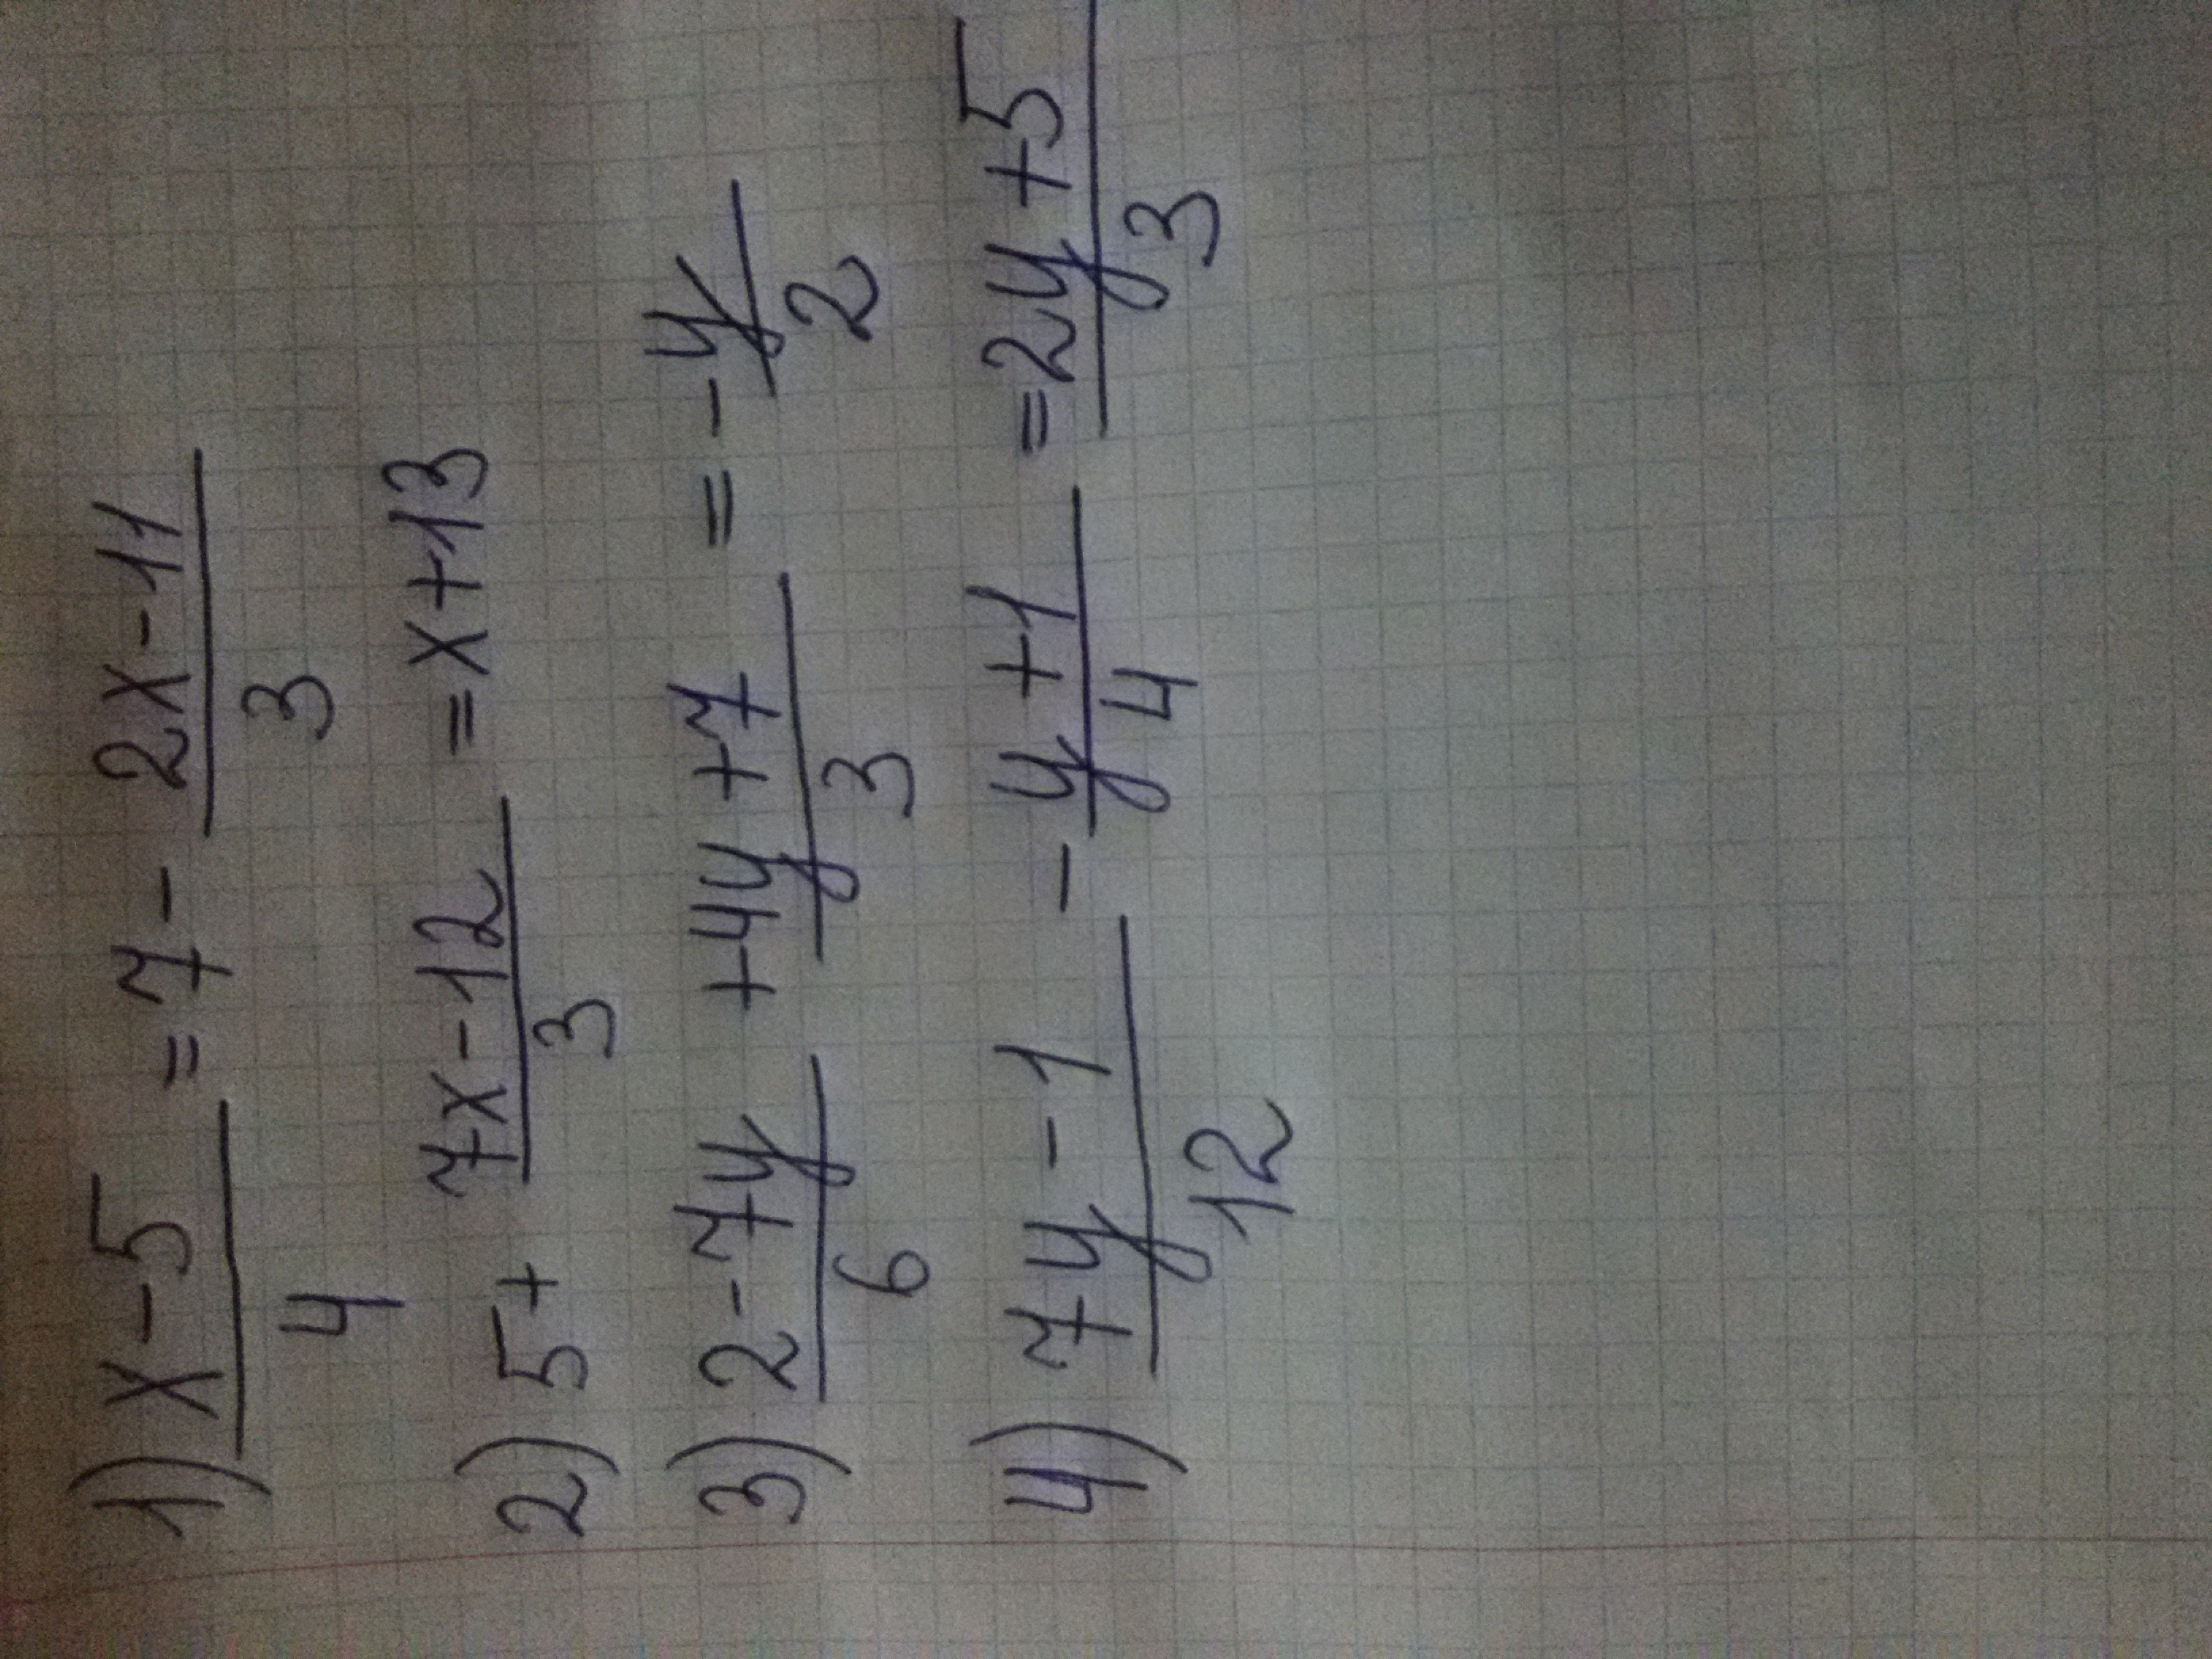 1) x-5/4 = 7 - 2x-11/3
2) 5+ 7x-12/3 = x+13
3) 2-7y/6 + 4y+7/3 = - y/2
4) 7y-1/12 - y+1/4 = 2y+5/3